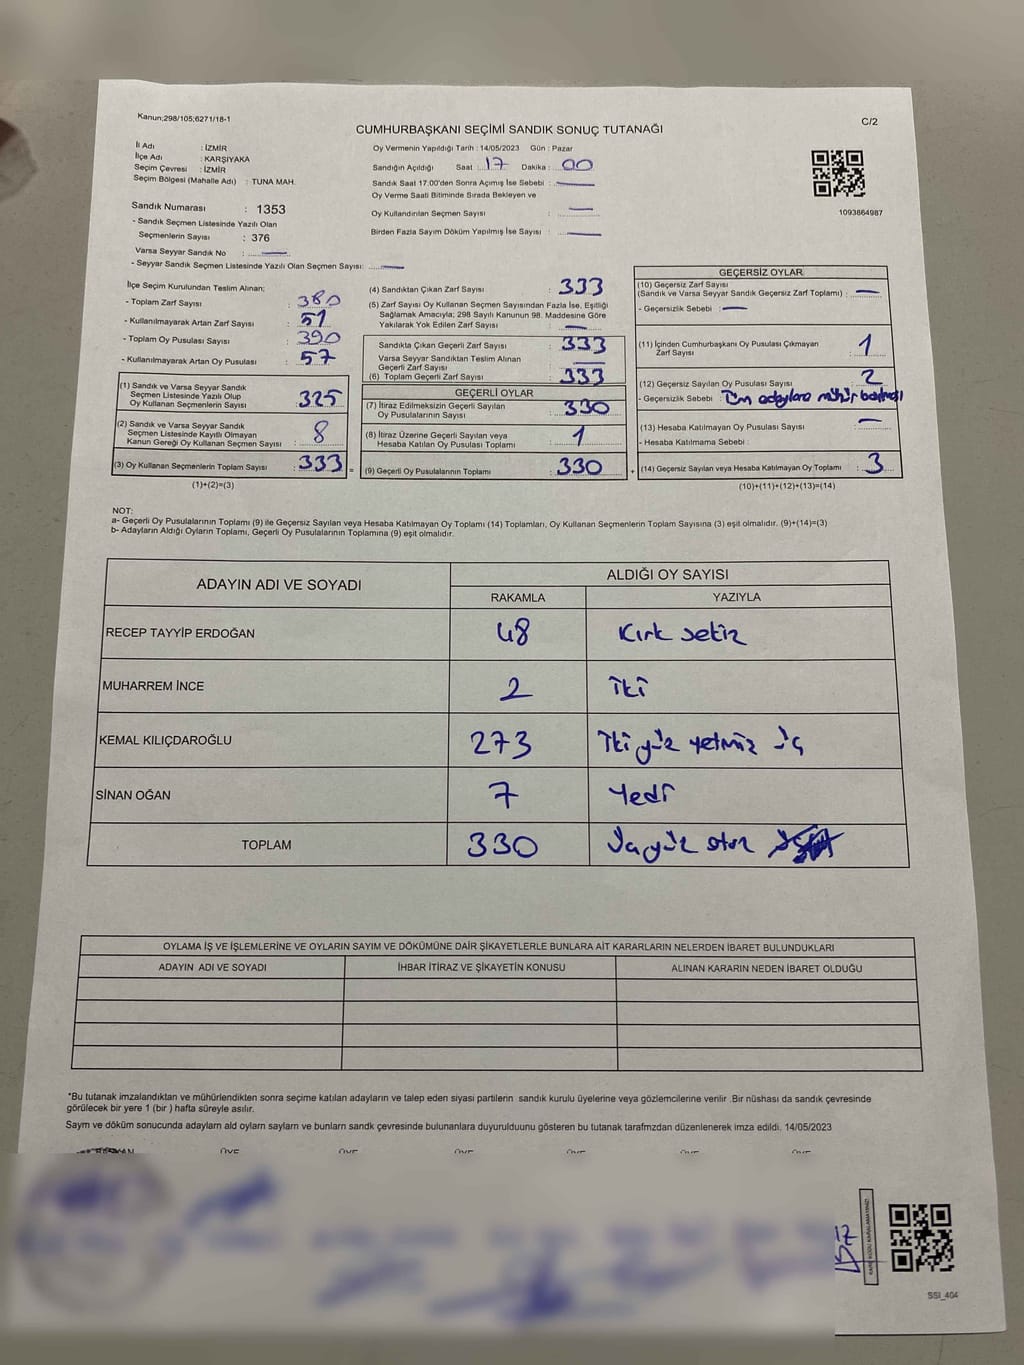 Kanun;298/105;6271/18-1
C/2
CUMHURBAŞKANI SEÇİMİ SANDIK SONUÇ TUTANAĞI
İl Adı : İZMİR
İlçe Adı : KARŞIYAKA
Seçim Çevresi : İZMİR
Seçim Bölgesi (Mahalle Adı) : TUNA MAH.
Sandık Numarası : 1353
- Sandık Seçmen Listesinde Yazılı Olan
Seçmenlerin Sayısı : 376
Varsa Seyyar Sandık No : —
- Seyyar Sandık Seçmen Listesinde Yazılı Olan Seçmen Sayısı: —
Oy Vermenin Yapıldığı Tarih : 14/05/2023 Gün : Pazar
Sandığın Açıldığı Saat : 17 Dakika : 00
Sandık Saat 17:00'den Sonra Açımış İse Sebebi : —
Oy Verme Saati Bitiminde Sırada Bekleyen ve
Oy Kullandırılan Seçmen Sayısı : —
Birden Fazla Sayım Döküm Yapılmış İse Sayısı : —
1093864987
İlçe Seçim Kurulundan Teslim Alınan;
- Toplam Zarf Sayısı : 380
- Kullanılmayarak Artan Zarf Sayısı : 51
- Toplam Oy Pusulası Sayısı : 390
- Kullanılmayarak Artan Oy Pusulası : 57
(1) Sandık ve Varsa Seyyar Sandık
Seçmen Listesinde Yazılı Olup
Oy Kullanan Seçmenlerin Sayısı : 325
(2) Sandık ve Varsa Seyyar Sandık
Seçmen Listesinde Kayıtlı Olmayan
Kanun Gereği Oy Kullanan Seçmen Sayısı : 8
(3) Oy Kullanan Seçmenlerin Toplam Sayısı : 333
(1)+(2)=(3)
(4) Sandıktan Çıkan Zarf Sayısı : 333
(5) Zarf Sayısı Oy Kullanan Seçmen Sayısından Fazla İse, Eşitliği
Sağlamak Amacıyla; 298 Sayılı Kanunun 98. Maddesine Göre
Yakılarak Yok Edilen Zarf Sayısı : —
Sandıkta Çıkan Geçerli Zarf Sayısı : 333
Varsa Seyyar Sandıktan Teslim Alınan
Geçerli Zarf Sayısı : —
(6) Toplam Geçerli Zarf Sayısı : 333
GEÇERLİ OYLAR
(7) İtiraz Edilmeksizin Geçerli Sayılan
Oy Pusulasının Sayısı : 330
(8) İtiraz Üzerine Geçerli Sayılan veya
Hesaba Katılan Oy Pusulası Toplamı : 1
= (9) Geçerli Oy Pusulalarının Toplamı : 330
GEÇERSİZ OYLAR
(10) Geçersiz Zarf Sayısı
(Sandık ve Varsa Seyyar Sandık Geçersiz Zarf Toplamı) : —
- Geçersizlik Sebebi : —
(11) İçinden Cumhurbaşkanı Oy Pusulası Çıkmayan
Zarf Sayısı : 1
(12) Geçersiz Sayılan Oy Pusulası Sayısı : 2
- Geçersizlik Sebebi : Tüm adaylara mühür
(13) Hesaba Katılmayan Oy Pusulası Sayısı : —
- Hesaba Katılmama Sebebi :
+ (14) Geçersiz Sayılan veya Hesaba Katılmayan Oy Toplamı : 3
(10)+(11)+(12)+(13)=(14)
NOT:
a- Geçerli Oy Pusulalarının Toplamı (9) ile Geçersiz Sayılan veya Hesaba Katılmayan Oy Toplamı (14) Toplamları, Oy Kullanan Seçmenlerin Toplam Sayısına (3) eşit olmalıdır. (9)+(14)=(3)
b- Adayların Aldığı Oyların Toplamı, Geçerli Oy Pusulalarının Toplamına (9) eşit olmalıdır.
ADAYIN ADI VE SOYADI
ALDIĞI OY SAYISI
RAKAMLA YAZIYLA
RECEP TAYYİP ERDOĞAN 48 Kırk sekiz
MUHARREM İNCE 2 İki
KEMAL KILIÇDAROĞLU 273 İki yüz yetmiş üç
SİNAN OĞAN 7 Yedi
TOPLAM 330 Üçyüz otuz
OYLAMA İŞ VE İŞLEMLERİNE VE OYLARIN SAYIM VE DÖKÜMÜNE DAİR ŞİKAYETLERLE BUNLARA AİT KARARLARIN NELERDEN İBARET BULUNDUKLARI
ADAYIN ADI VE SOYADI İHBAR İTİRAZ VE ŞİKAYETİN KONUSU ALINAN KARARIN NEDEN İBARET OLDUĞU
*Bu tutanak imzalandıktan ve mühürlendikten sonra seçime katılan adayların ve talep eden siyasi partilerin sandık kurulu üyelerine veya gözlemcilerine verilir .Bir nüshası da sandık çevresinde
görülecek bir yere 1 (bir ) hafta süreyle asılır.
Saym ve döküm sonucunda adaylarn ald oylarn saylarn ve bunlarn sandk çevresinde bulunanlara duyurulduunu gösteren bu tutanak tarafmzdan düzenlenerek imza edildi. 14/05/2023
ÜYE ÜYE ÜYE ÜYE ÜYE ÜYE
SSI_404